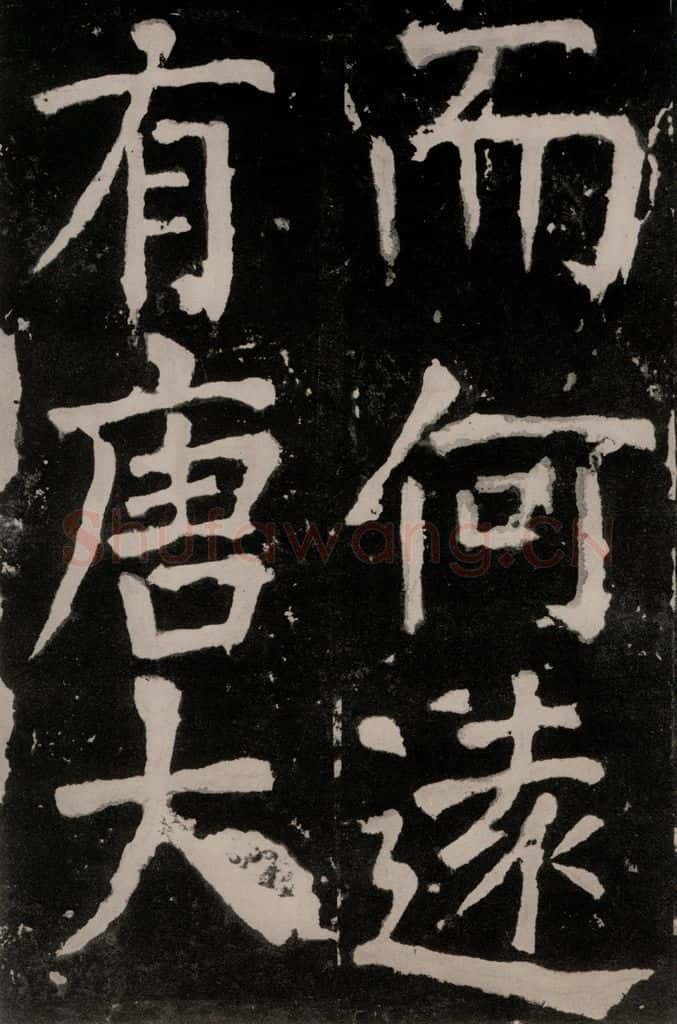 而何遠
有唐大
Shufawang.CN